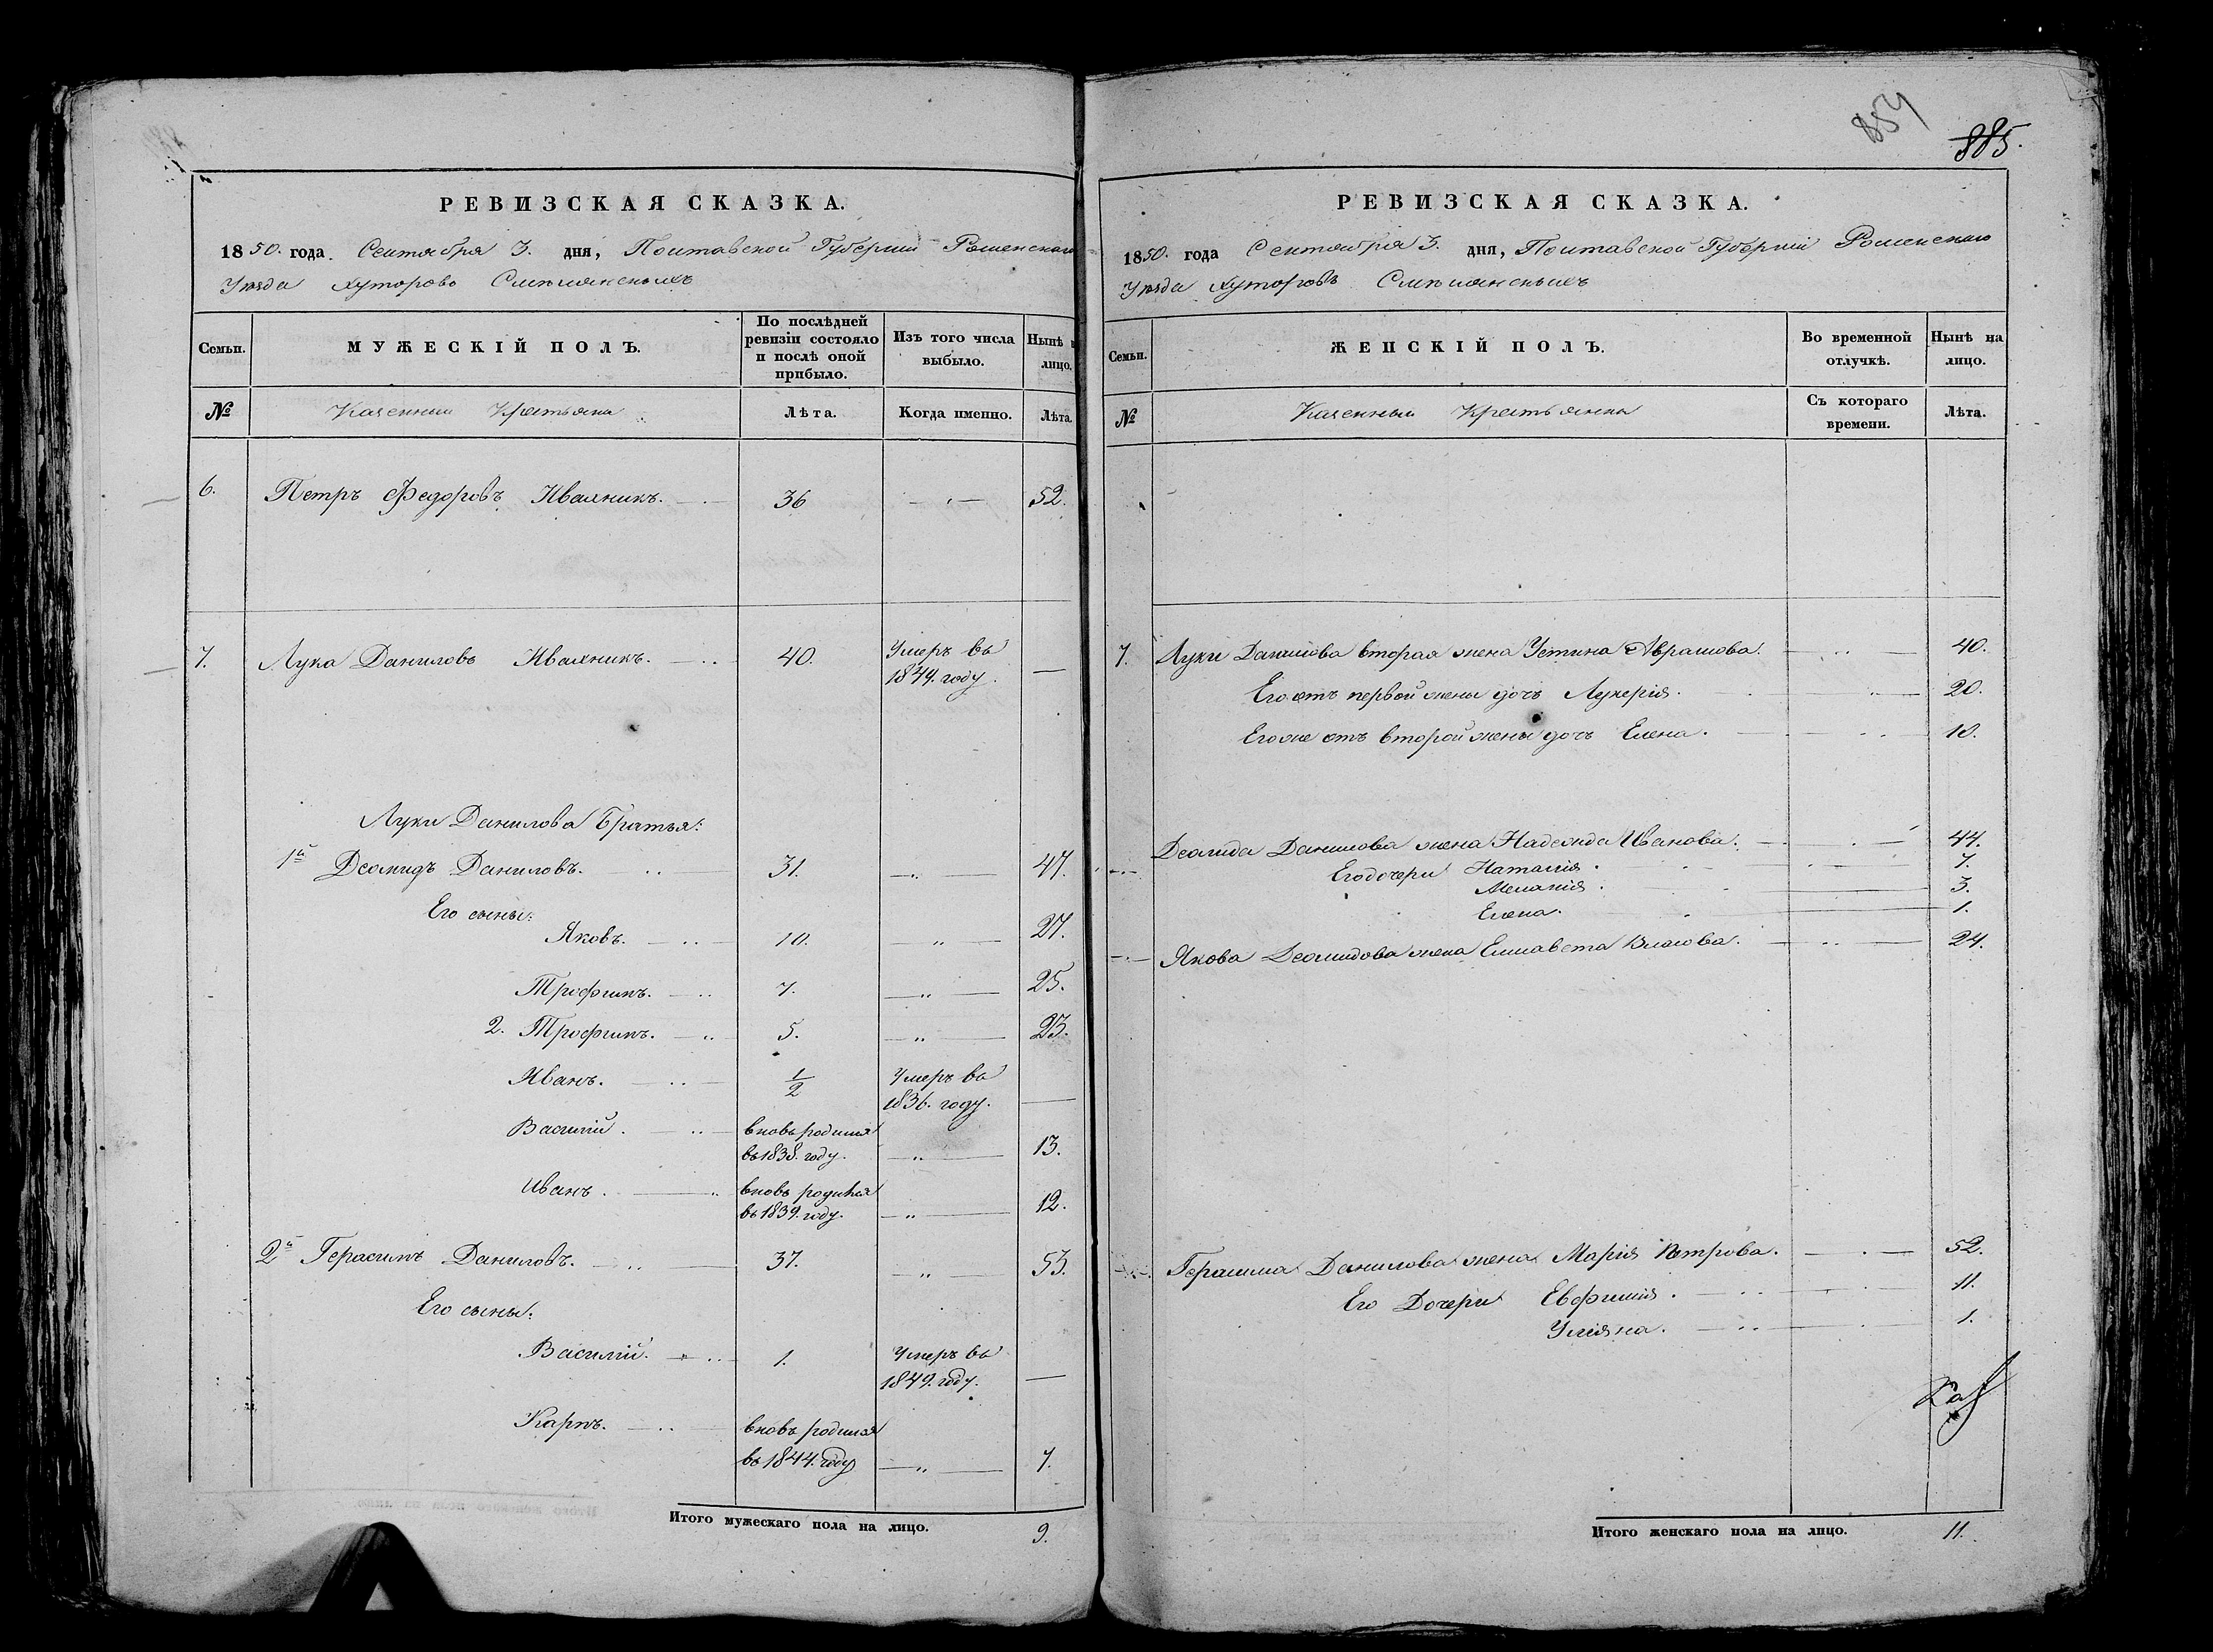 854
885.
РЕВИЗСКАЯ СКАЗКА.
1850. года. Сентября 3. дня, Полтавской Губернии Роменскаго
Уезда хуторовъ
Семьи.
МУЖЕСКІЙ ПОЛЪ.
По послѣдней ревизіи состояло и послѣ оной прибыло.
Изъ того числа выбыло.
Нынѣ на лицо.
№
Казенныи Крестьяни
Лѣта.
Когда именно.
Лѣта.
6. Петръ Федоровъ Ивахникъ. 36 52.
7. Лука Даниловъ Ивахникъ. 40. Умеръ въ 1844. году.
Луки Данилова Братья:
1й Деомидъ Даниловъ. 31. 47.
Его сыны:
Яковъ. 10. 27.
Трофимъ. 7. 25.
2. Трофимъ. 5. 23.
Иванъ. 1/2 Умеръ въ 1836. году.
Василій. вновь родился въ 1838. году. 13.
Иванъ. вновь родился въ 1839. году. 12.
2й Герасимъ Даниловъ. 37. 53.
Его сыны:
Василий. 1. Умеръ въ 1849. году.
Карпъ. вновь родился въ 1844. году 7.
Итого мужескаго пола на лицо. 9.
РЕВИЗСКАЯ СКАЗКА.
1850. года Сентября 3. дня, Полтавской Губерніи Роменскаго
Уезда хуторовъ
Семьи.
ЖЕНСКІЙ ПОЛЪ.
Во временной отлучкѣ.
Нынѣ на лицо.
№
Казенныи Крестьянки
Съ котораго времени.
Лѣта.
7. Луки Данилова вторая жена Устина Аврамова. 40.
Его отъ первой жены дочь Лукерія. 20.
Его же отъ второй жены дочь Елена. 10.
Деомида Данилова жена Надежда Иванова. 44.
Его дочери Наталія. 7.
Меланія. 3.
Елена. 1.
Якова Деомидова жена Елисавета Власова. 24.
Герасима Данилова жена Марія Петрова. 52.
Его Дочери Евфимія. 11.
Уліяна. 1.
Итого женскаго пола на лицо. 11.